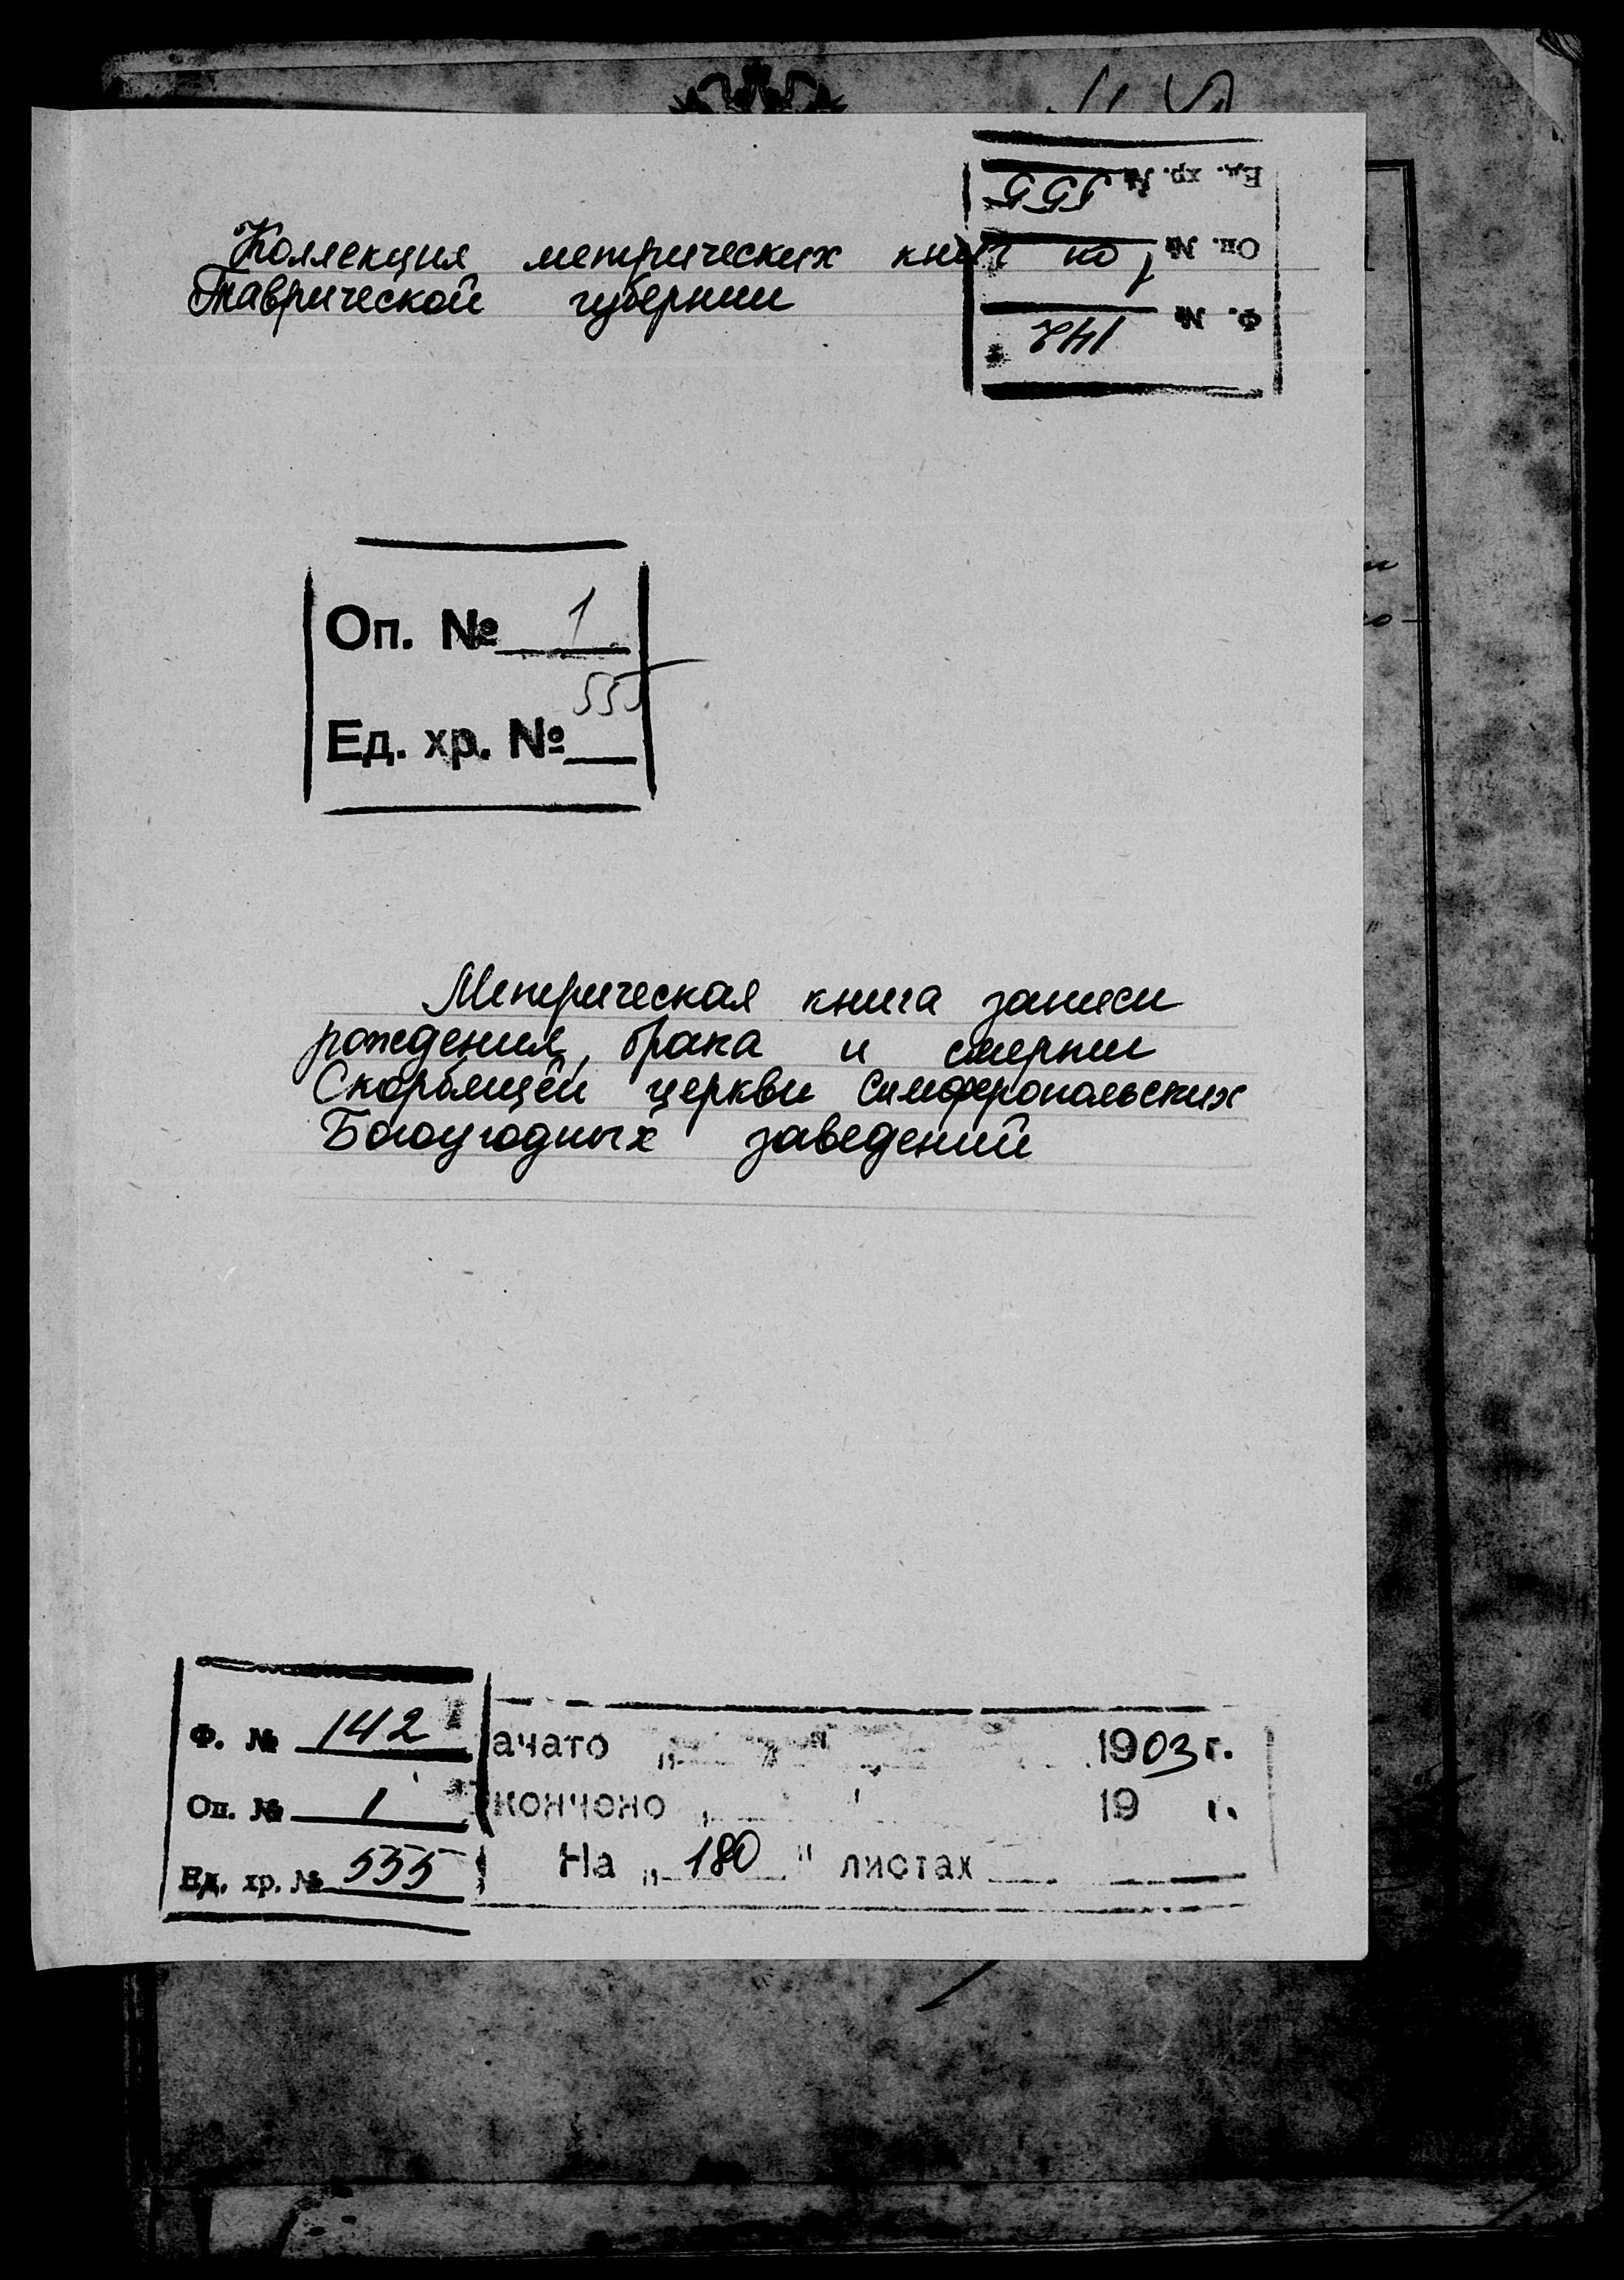 Ед. хр. № 555
Оп. № 1
Ф. № 142
Коллекция метрических книг по
Таврической губернии
Оп. № 1
555
Ед. хр. №
Метрическая книга записи
рождения, брака и смерти
Скорбящей церкви Симферопольских
Богоугодных заведений
Ф. № 142
Оп. № 1
Ед. хр. № 555
ачато " " 1903 г.
кончено " 19 г.
На " 180 " листах